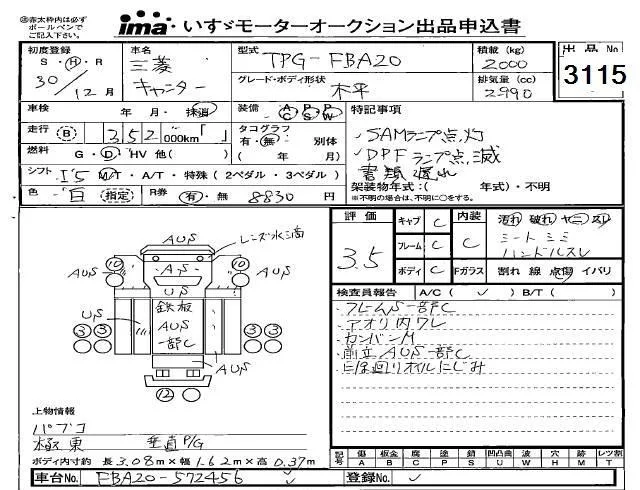 ㊟赤太枠内は必ず
ボールペンで
ご記入下さい。
ima いすゞモーターオークション出品申込書
初度登録
S・H・R
30/12月
車名
三菱
キャンター
型式
TPG-FBA20
グレード・ボディ形状
木平
積載 (kg)
2000
排気量 (cc)
2990
出品No
3115
車検 年 月・抹消
装備 AC PS PW
走行 B 352 000km「 」
タコグラフ
有・無 別体
( 年 月)
燃料 G・D・HV 他( )
シフト I5 M/T・A/T・特殊 (2ペダル・3ペダル)
色 白 (指定) R券 有・無 8830 円
特記事項
SAMランプ点灯
DPFランプ点滅
書類遅れ
架装物年式:( 年式)・不明
※不明の場合は、不明に○をする。
評価
3.5
キャブ C
フレーム C
ボディ C
内装 C
Fガラス
汚れ 破れ ヤニ スレ
シートシミ
ハンドルスレ
割れ 線 点傷 イバリ
検査員報告 A/C ( ✓ ) B/T ( )
・フレームS一部C
・アオリ内ワレ
・カンバンM
・前立AUS一部C
AUS
レンズ水滴
10
AUS
AS
10
AUS
US
US
鉄板
AUS
一部C
3 3
3 3
AUS
12
上物情報
パブコ
極東 垂直P/G
ボディ内寸約 長3.08m×幅1.62m×高0.37m
記号 傷 板金 腐 塗 錆 凹凸曲 波 穴 跡 レツ割
A B C P S U W H M T
車台No. FBA20-572456 ✓
登録No. ✓